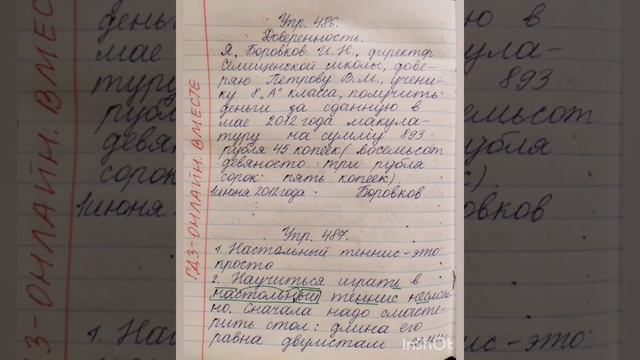 Упр. 486.
Доверенность.
Я, Боровков И.Н., директор
Семищенской школы, дове-
ряю Петрову В.М., учени-
ку 8 „А" класса, получить
деньги за сданную в
мае 2012 года макула-
туру на сумму 893
рубля 45 копеек (восемьсот
девяносто три рубля
сорок пять копеек)
1 июня 2012 года Боровков
Упр. 487.
1. Настольный теннис - это
просто
2. Научиться играть в
настольный теннис неслож
но. Сначала надо смасте-
рить стол: длина его
равна двумстам
ГДЗ-ОНЛАЙН. ВМЕСТЕ
InShOt